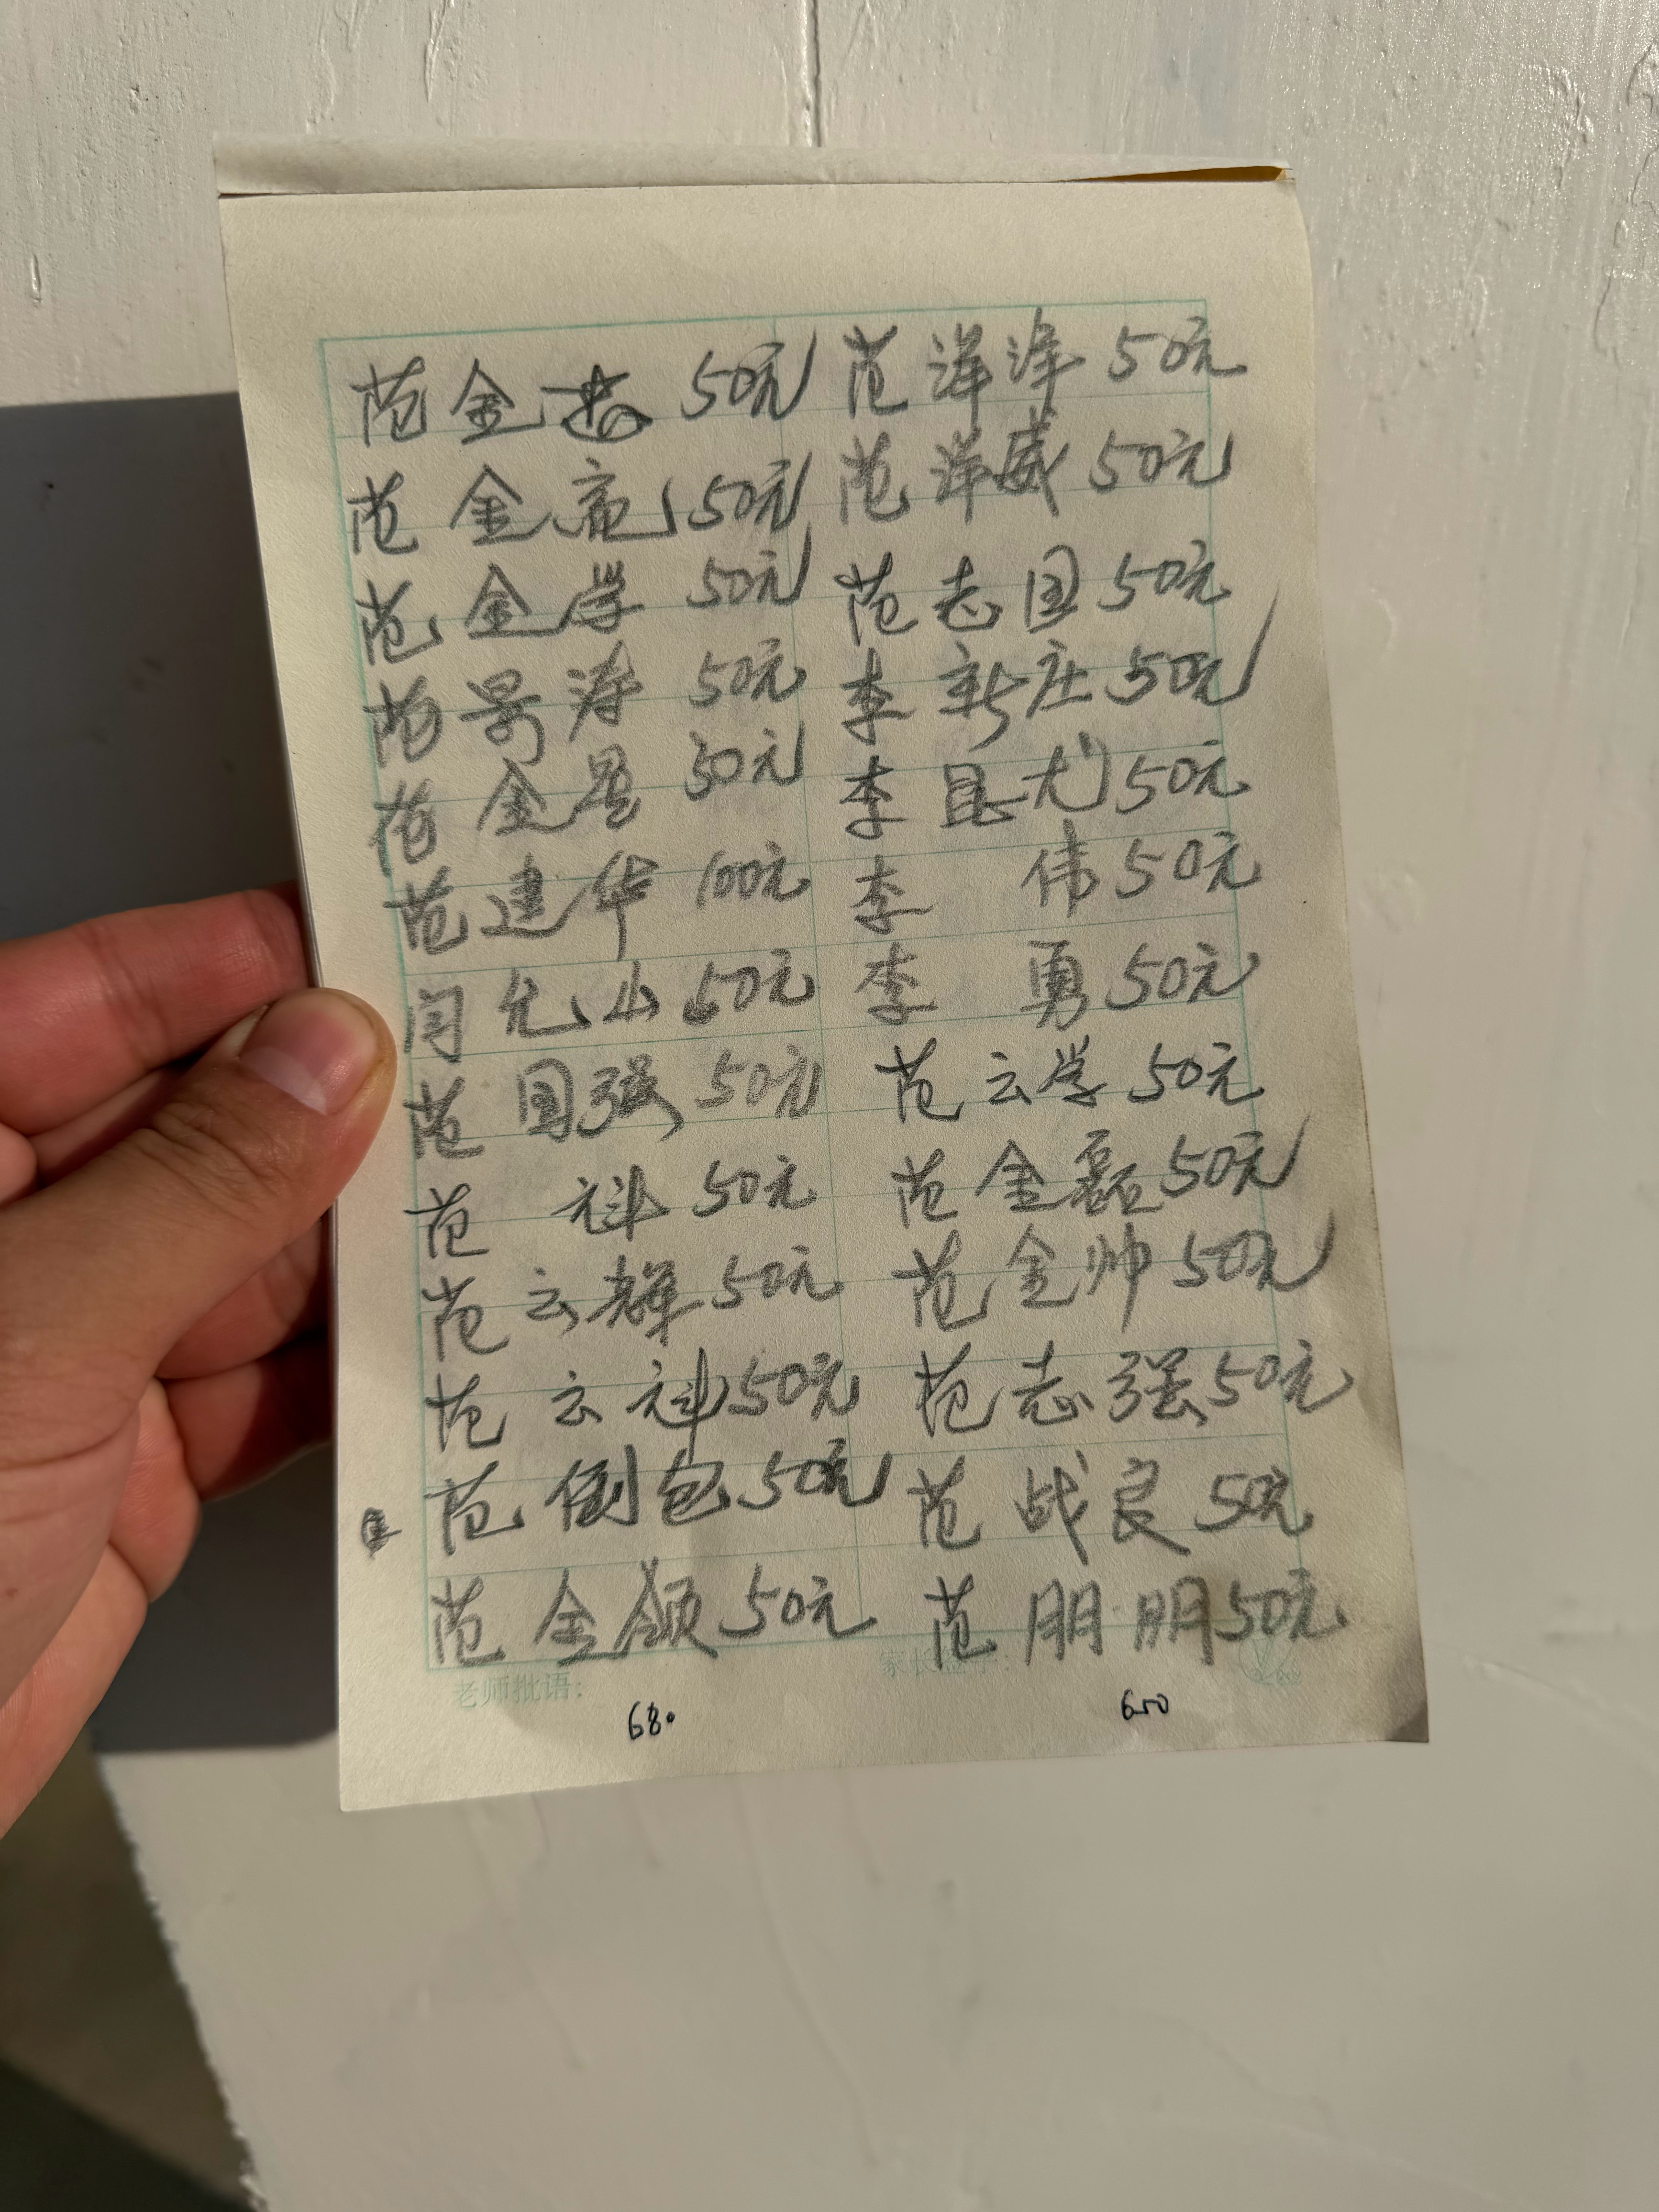 范金 50元
范金亮 50元
范金学 50元
范景涛 50元
范金星 30元
范建华 100元
闫允山 50元
范国强 50元
范 科 50元
范云辉 50元
范云科 50元
范倒包 50元
范金领 50元
老师批语：
680
范洋洋 50元
范洋威 50元
范志国 50元
李新庄 50元
李 50元
李 伟 50元
李 勇 50元
范云学 50元
范金磊 50元
范金帅 50元
范志强 50元
范战良 50元
范朋朋 50元
650